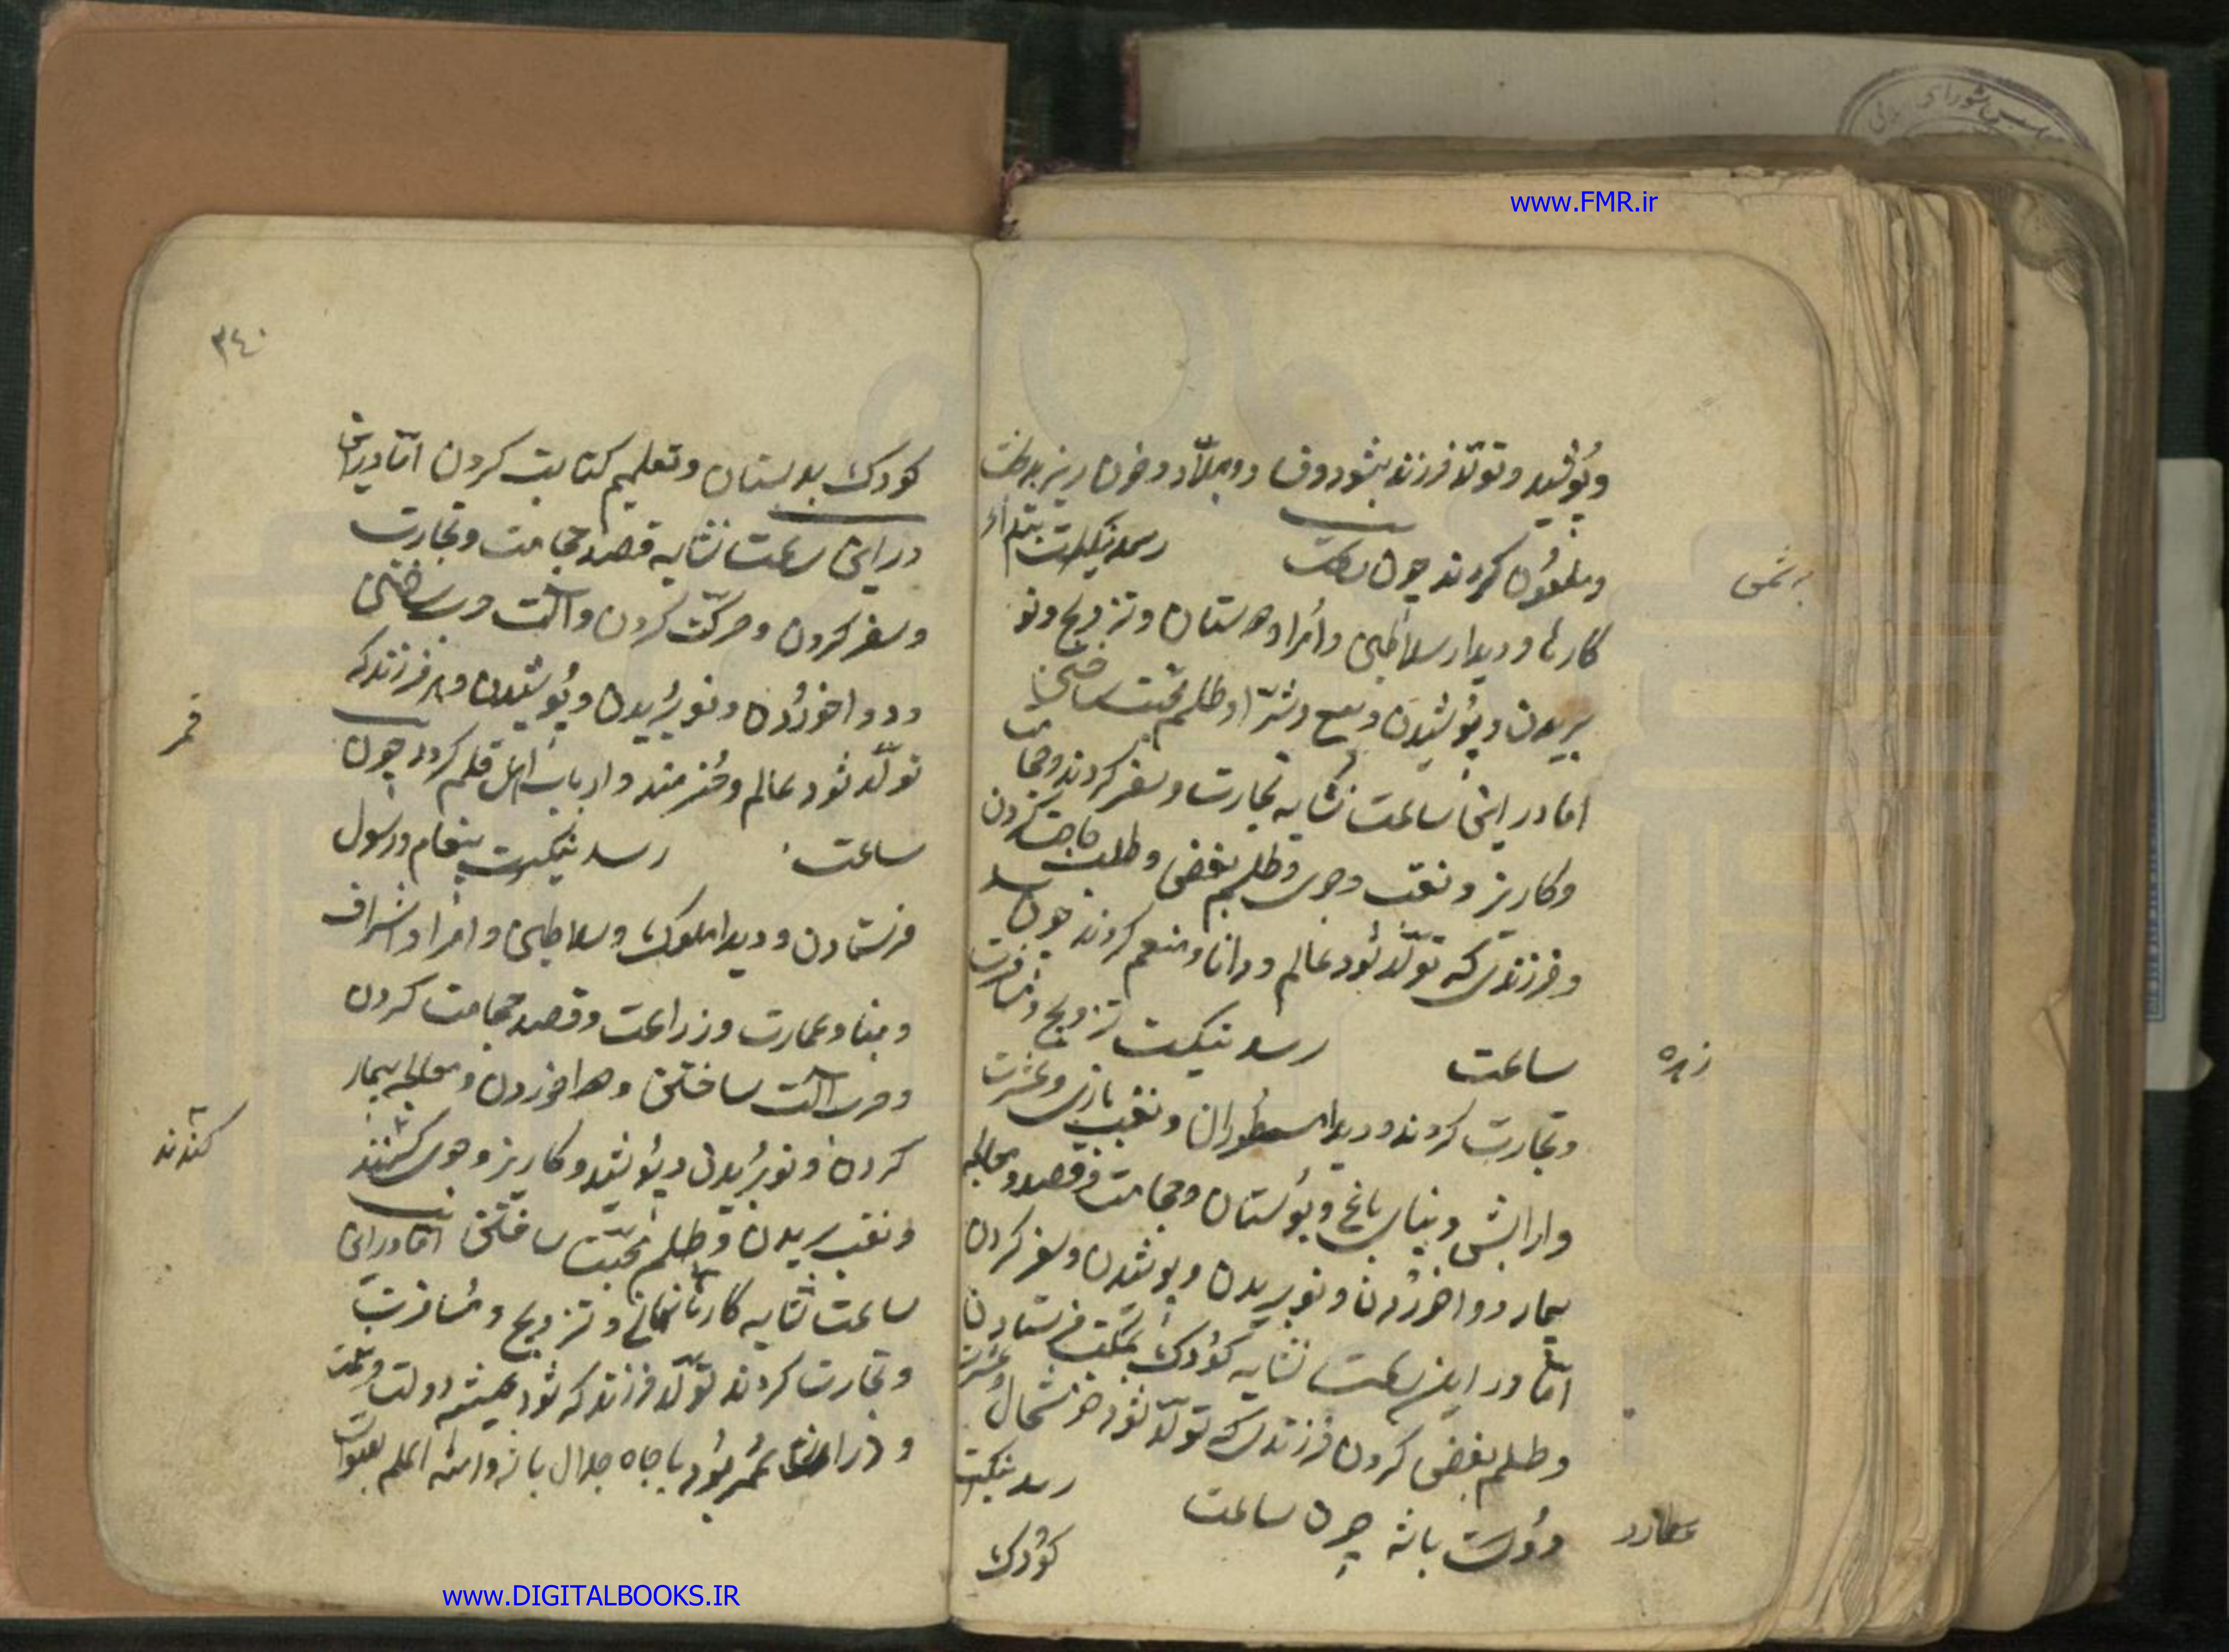 www.FMR.ir
وپوشید وتولّد فرزند بشود و جلّاد وخون ریز
وملعون کردند چون ساعت رسد نیکست ابتداء
بشمس
کارها و دیدار سلاطین وامراء و تزویج ونو
بریدن وپوشیدن وبیع وشرّا وطلسم محبت ساختن
اما در این ساعت نشاید تجارت وسفر کردند وحجامت
وکاریز ونقب وجوی وطلسم بغض وطلب حاجت کردن
وفرزندی که تولّد شود عالم ودانا ومنعم کردند چون
ساعت رسد نیکست تزویج
زهره
وتجارت کردند ودیدار ونقب بازی وعشرت
وارایش وبنیاى باغ وبوستان وحجامت وفصد ومعالجه
بیمار دوا خوردن ونو بریدن وپوشیدن وسفر کردن
امّا در این ساعت نشاید کودک بمکتب فرستادن
وطلسم بغض کردن فرزندی که تولّد شود خوشحال وعشرت
دوست باشد چون ساعت رسد نیکست
عطارد
کودک
٣٤٠
کودک بدبستان وتعلیم کتابت کردن امّا
در این ساعت نشاید فصد حجامت وتجارت
وسفر کردن وحرکت کردن وآلت ساختن
ودوا خوردن ونو بریدن وپوشیدن وهر فرزند که
تولّد شود عالم وهنرمند وارباب اهل قلم کردد چون
قمر
ساعت رسد نیکست پیغام ورسول
فرستادن ودیدار ملوک وسلاطین وامرا واشراف
وبنا وعمارت وزراعت وفصد حجامت کردن
وحرب آلت ساختن ودوا خوردن ومعالجه بیمار
کردن ونو بریدن وپوشید وکاریز وجوی
کندند
ونقب بریدن وطلسم محبّت ساختن امّا در این
ساعت نشاید کارها وتزویج ومسافرت
وتجارت کردند تولّد فرزند که شود همیشه دولت
ودراز عمر بود با جاه جلال باشد والله اعلم بالصواب
www.DIGITALBOOKS.IR